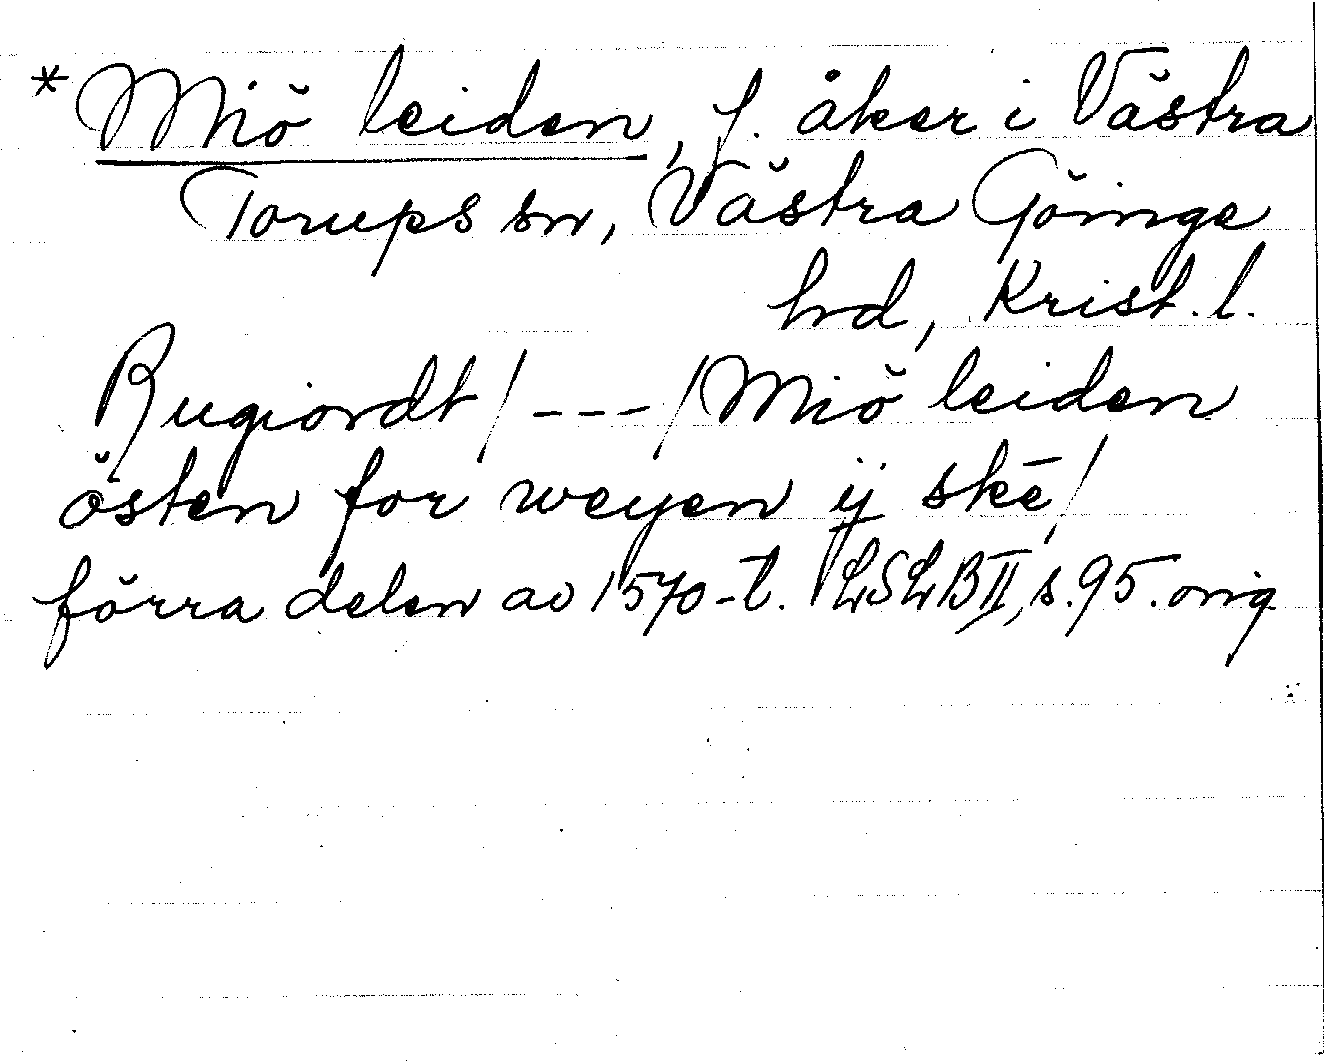 *Miö leiden, f. åker i Västra
Torups sn, Västra Göinge
hrd, Krist. l.
Rugiordt / --- / Miö leiden
östen for weyen ij skē /
förra delen av 1570-t. LSLB II, s. 95. orig